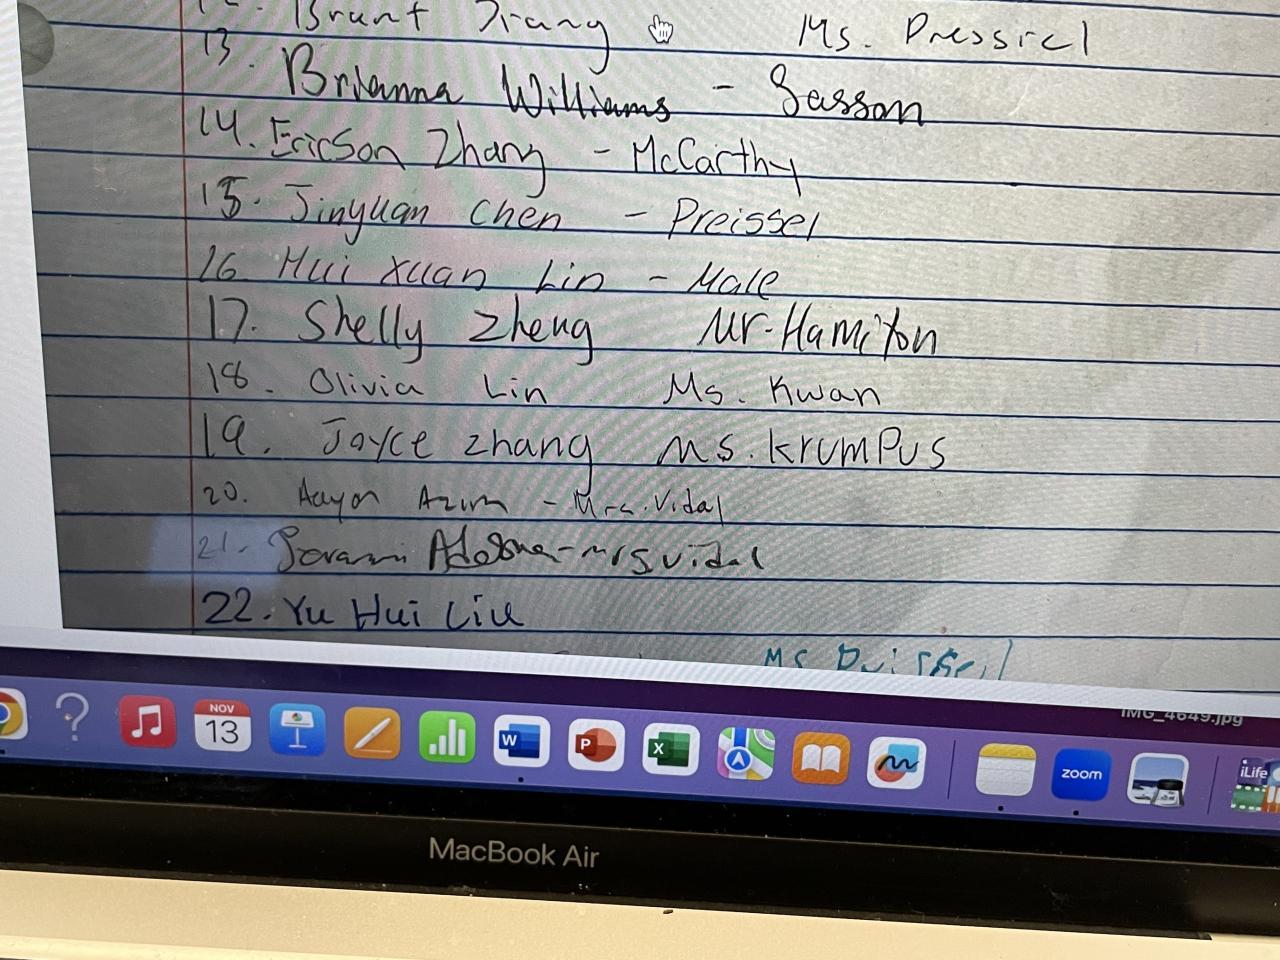 Brunt Jiang Ms. Pressiel
13. Brianna Williams - Sasson
14. Ericson Zhang - McCarthy
15. Jinyuan Chen - Preissel
16 Hui Xuan Lin - Male
17. Shelly Zheng Mr-Hamilton
18. Olivia Lin Ms. Kwan
19. Joyce Zhang Ms. Krumpus
20. Aayon Azim - Mrs. Vidal
21. - Mrs Vidal
22. Yu Hui Liu
Ms
IMG_4649.jpg
NOV
13
W
P
X
zoom
iLife
MacBook Air